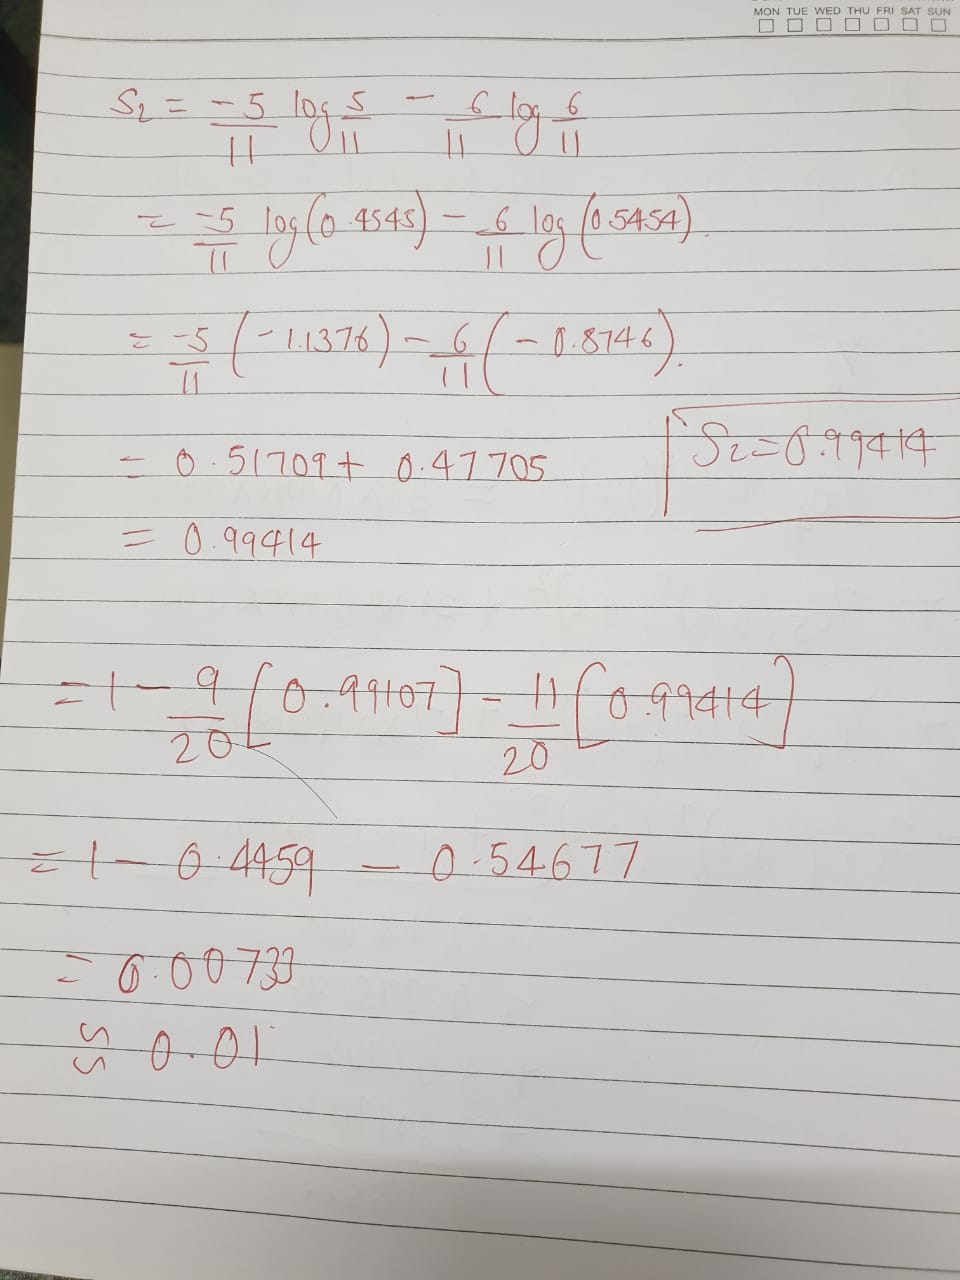 MON TUE WED THU FRI SAT SUN
S₂ = -5/11 log 5/11 - 6/11 log 6/11
= -5/11 log(0.4545) - 6/11 log(0.5454).
= -5/11 (-1.1376) - 6/11 (-0.8746).
= 0.51709 + 0.47705
S₂ = 0.99414
= 0.99414
= 1 - 9/20 [0.99107] - 11/20 [0.99414]
= 1 - 0.4459 - 0.54677
= 0.00733
≈ 0.01